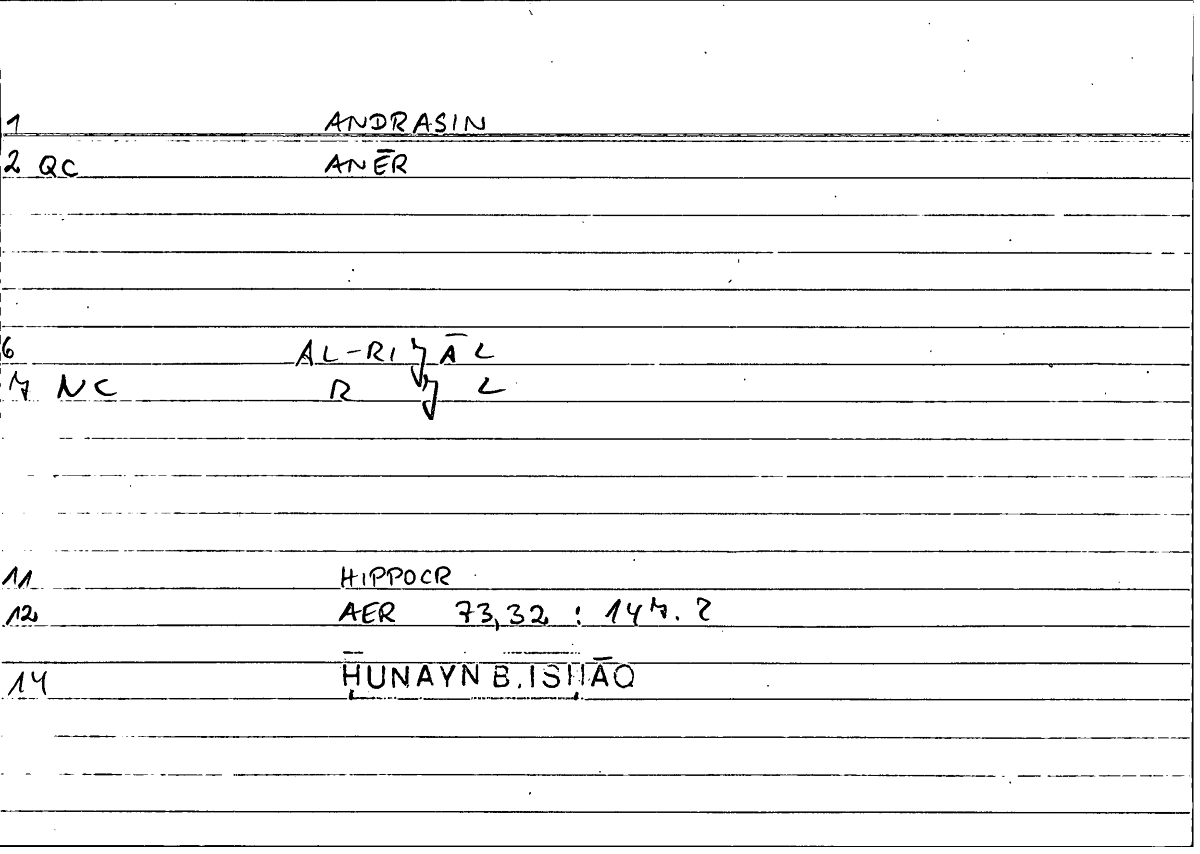 1 ANDRASIN
2 QC ANĒR
6 AL-RIǦĀL
7 NC R Ǧ L
11 HIPPOCR
12 AER 73,32 : 147.2
14 ḤUNAYN B. ISḤĀQ